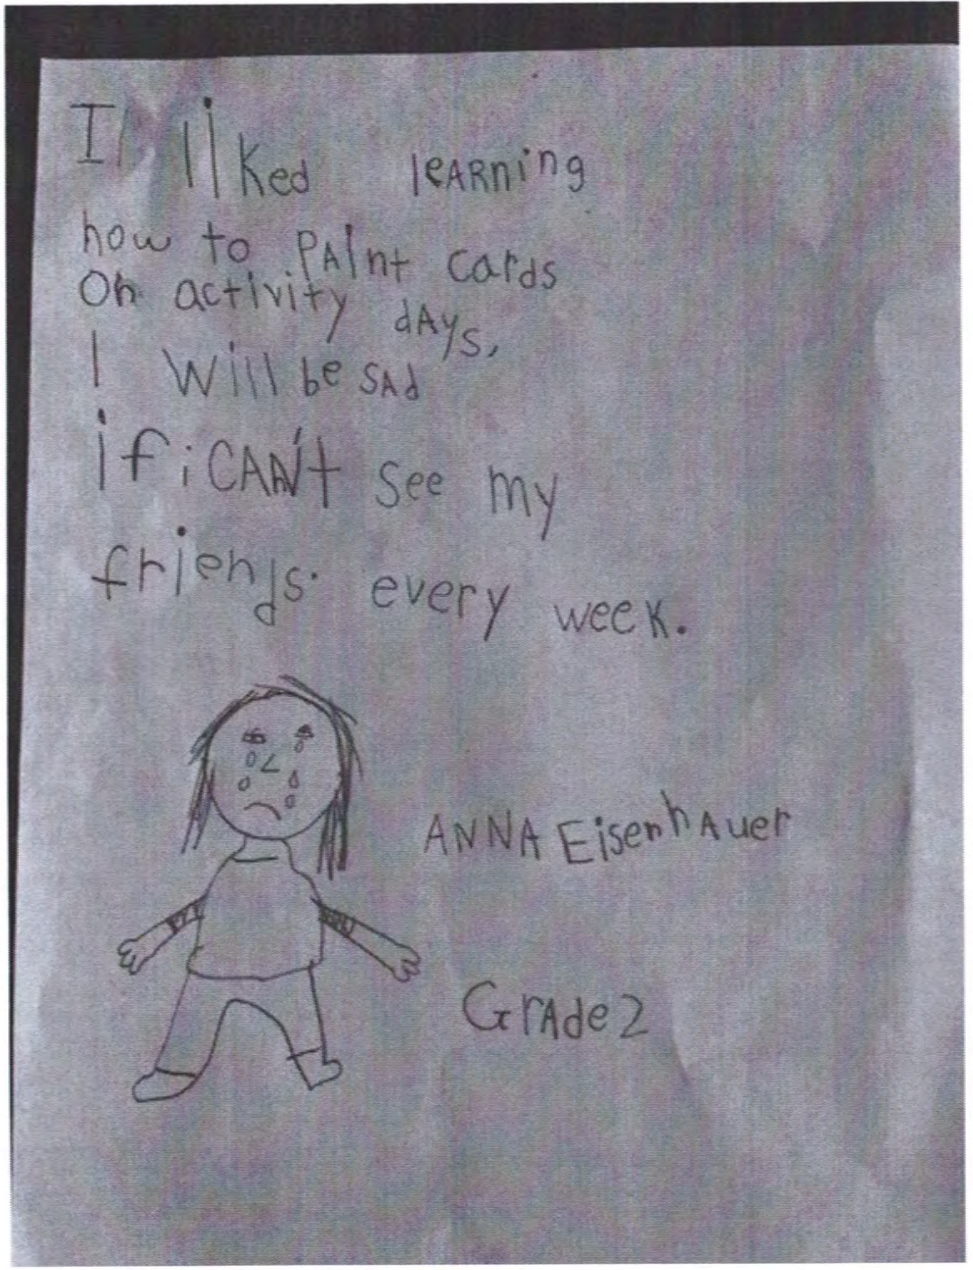 I liked leARning
how to PAint cards
On activity dAys,
I Will be SAd
if i CAN't see my
friends. every week.
ANNA EisenhAuer
GrAde 2